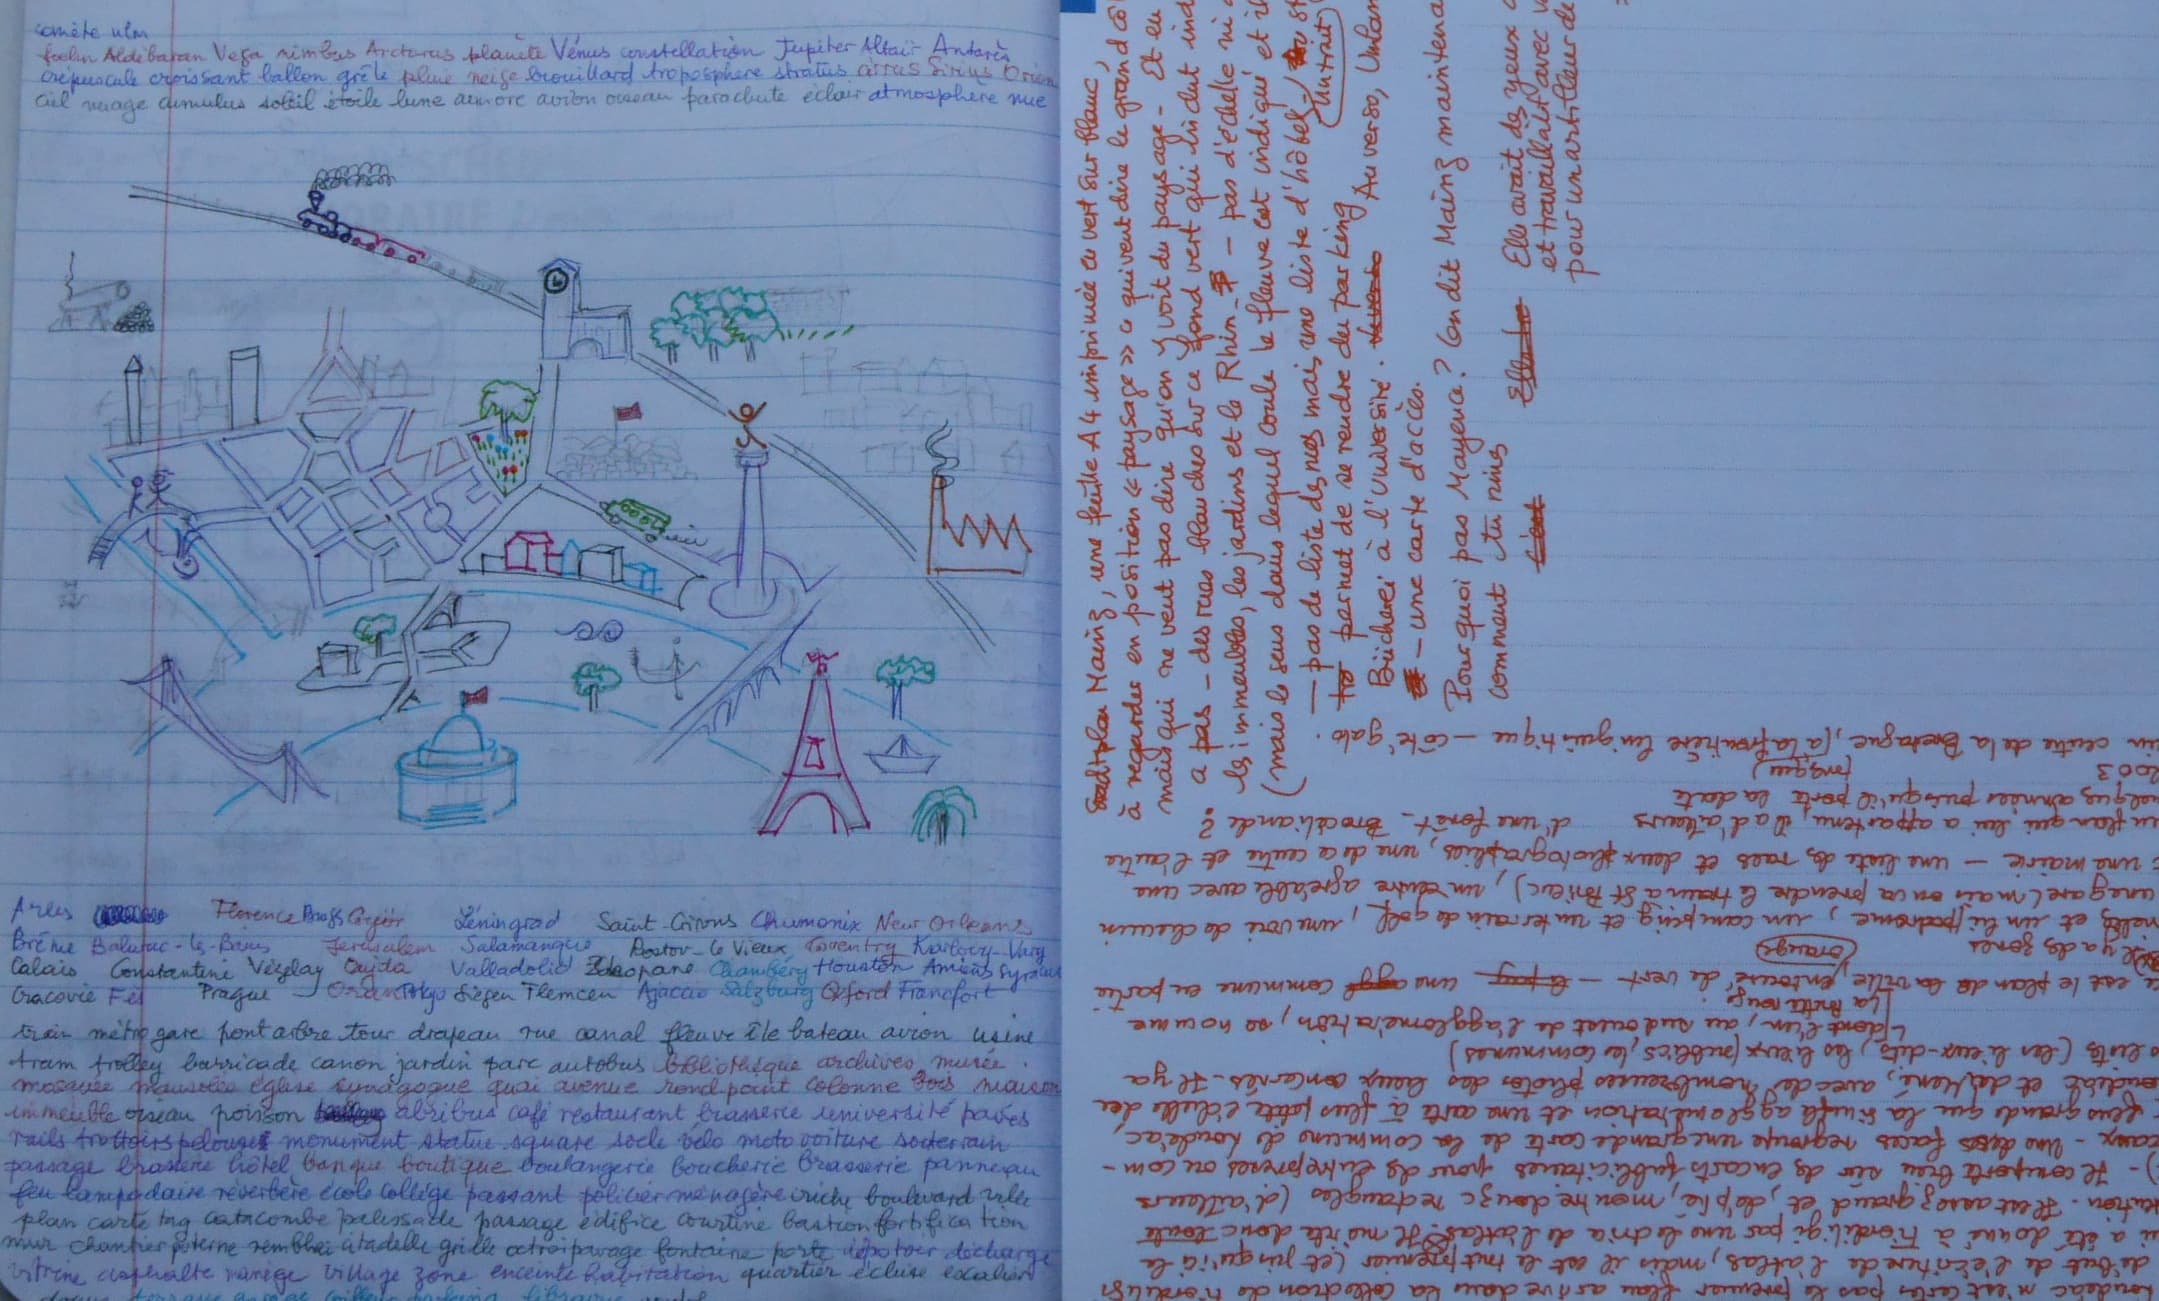 comète ulm
foehn Aldébaran Vega nimbus Arcturus planète Vénus constellation Jupiter Altaïr Antarès
crépuscule croissant ballon grêle pluie neige brouillard troposphère stratus cirrus Sirius Orion
ciel nuage cumulus soleil étoile lune aurore avion oiseau parachute éclair atmosphère nue
Arles Florence Györ Léningrad Saint-Girons Chamonix New Orleans
Brême Balaruc-les-Bains Jerusalem Salamanque Rostov-le Vieux Coventry Karlovy-Vary
Calais Constantine Vézelay Oujda Valladolid Zakopane Chambéry Houston Amiens Syracuse
Cracovie Fès Prague Oran Tokyo Siegen Tlemcen Ajaccio Salzburg Oxford Francfort
train métro gare pont arbre tour drapeau rue canal fleuve île bateau avion usine
tram trolley barricade canon jardin parc autobus bibliothèque archives musée
mosquée mausolée église synagogue quai avenue rond-point colonne bois maison
immeuble oiseau poisson abribus café restaurant brasserie université pavés
rails trottoirs pelouse monument statue square socle vélo moto voiture souterrain
passage brasserie hôtel banque boutique boulangerie boucherie brasserie panneau
feu lampadaire réverbère école collège passant policier ménagère boulevard ville
plan carte tag catacombe palissade passage édifice courtine bastion fortification
mur chantier poterne remblai citadelle grille octroi pavage fontaine porte dépotoir décharge
vitrine asphalte manège village zone enceinte habitation quartier écluse escalier
Stadtplan Mainz, une feuille A4 imprimée en vert sur blanc,
à regarder en position « paysage » ce qui veut dire le grand cô
mais qui ne veut pas dire qu'on y voit du paysage - Et en
a pas - des rues blanches sur ce fond vert qui inclut ind
les immeubles, les jardins et le Rhin - pas d'échelle ni
(mais le sens dans lequel coule le fleuve est indiqué et il
- pas de liste des rues mais une liste d'hôtels
Un trait
permet de se rendre du parking
Bücherei à l'université. Au verso, Urlau
- une carte d'accès.
Pourquoi pas Mayence? (on dit Mainz maintena
comment tu ris
Elle avait des yeux
et travaillait avec
pour un artilleur de
un centre de la Bretagne, (à la frontière linguistique - côté gallo.
2003
quelques années puisqu'il porte la date
un plan qui lui a appartenu, il a d'ailleurs d'une forêt - Brocéliande ?
une mairie - une liste des rues et deux photographies, une de ce centre et l'autre
une gare (mais on va prendre le train à St Brieuc), un centre agréable avec une
et un hippodrome, un camping et un terrain de golf, une voie de chemin
il y a des zones
orange
ce est le plan de la ville, entouré de vert - une commune en partie
La Motte rouge
dont l'un, au sud ouest de l'agglomération, se nomme
listes (les lieux-dits, les lieux publics, les communes)
condité et déplené, avec de nombreuses photos des lieux concernés - Il y a
plus grande que la simple agglomération et une carte à plus petite échelle de
eaux - Une des faces regroupe une grande carte de la commune de Loudéac,
- Il comporte bien sûr des encarts publicitaires pour des entreprises ou com-
ution. Il est assez grand et, déplié, montre douze rectangles (d'ailleurs
a été donné à Nordiligi par une lectrice de l'atlas. Il mérite donc toute
début de l'écriture de l'atlas, mais il est le tout premier (et jusqu'ici le
Loudéac n'est certes pas le premier plan arrivé dans la collection de